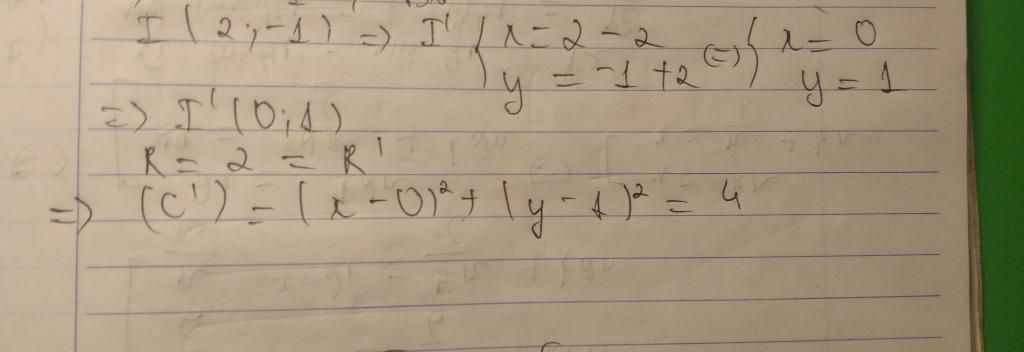 I (2;-1) => I' { x = 2 - 2 (=) { x = 0
y = -1 + 2 y = 1
=> I' (0;1)
R = 2 = R'
=> (C') = (x - 0)² + (y - 1)² = 4